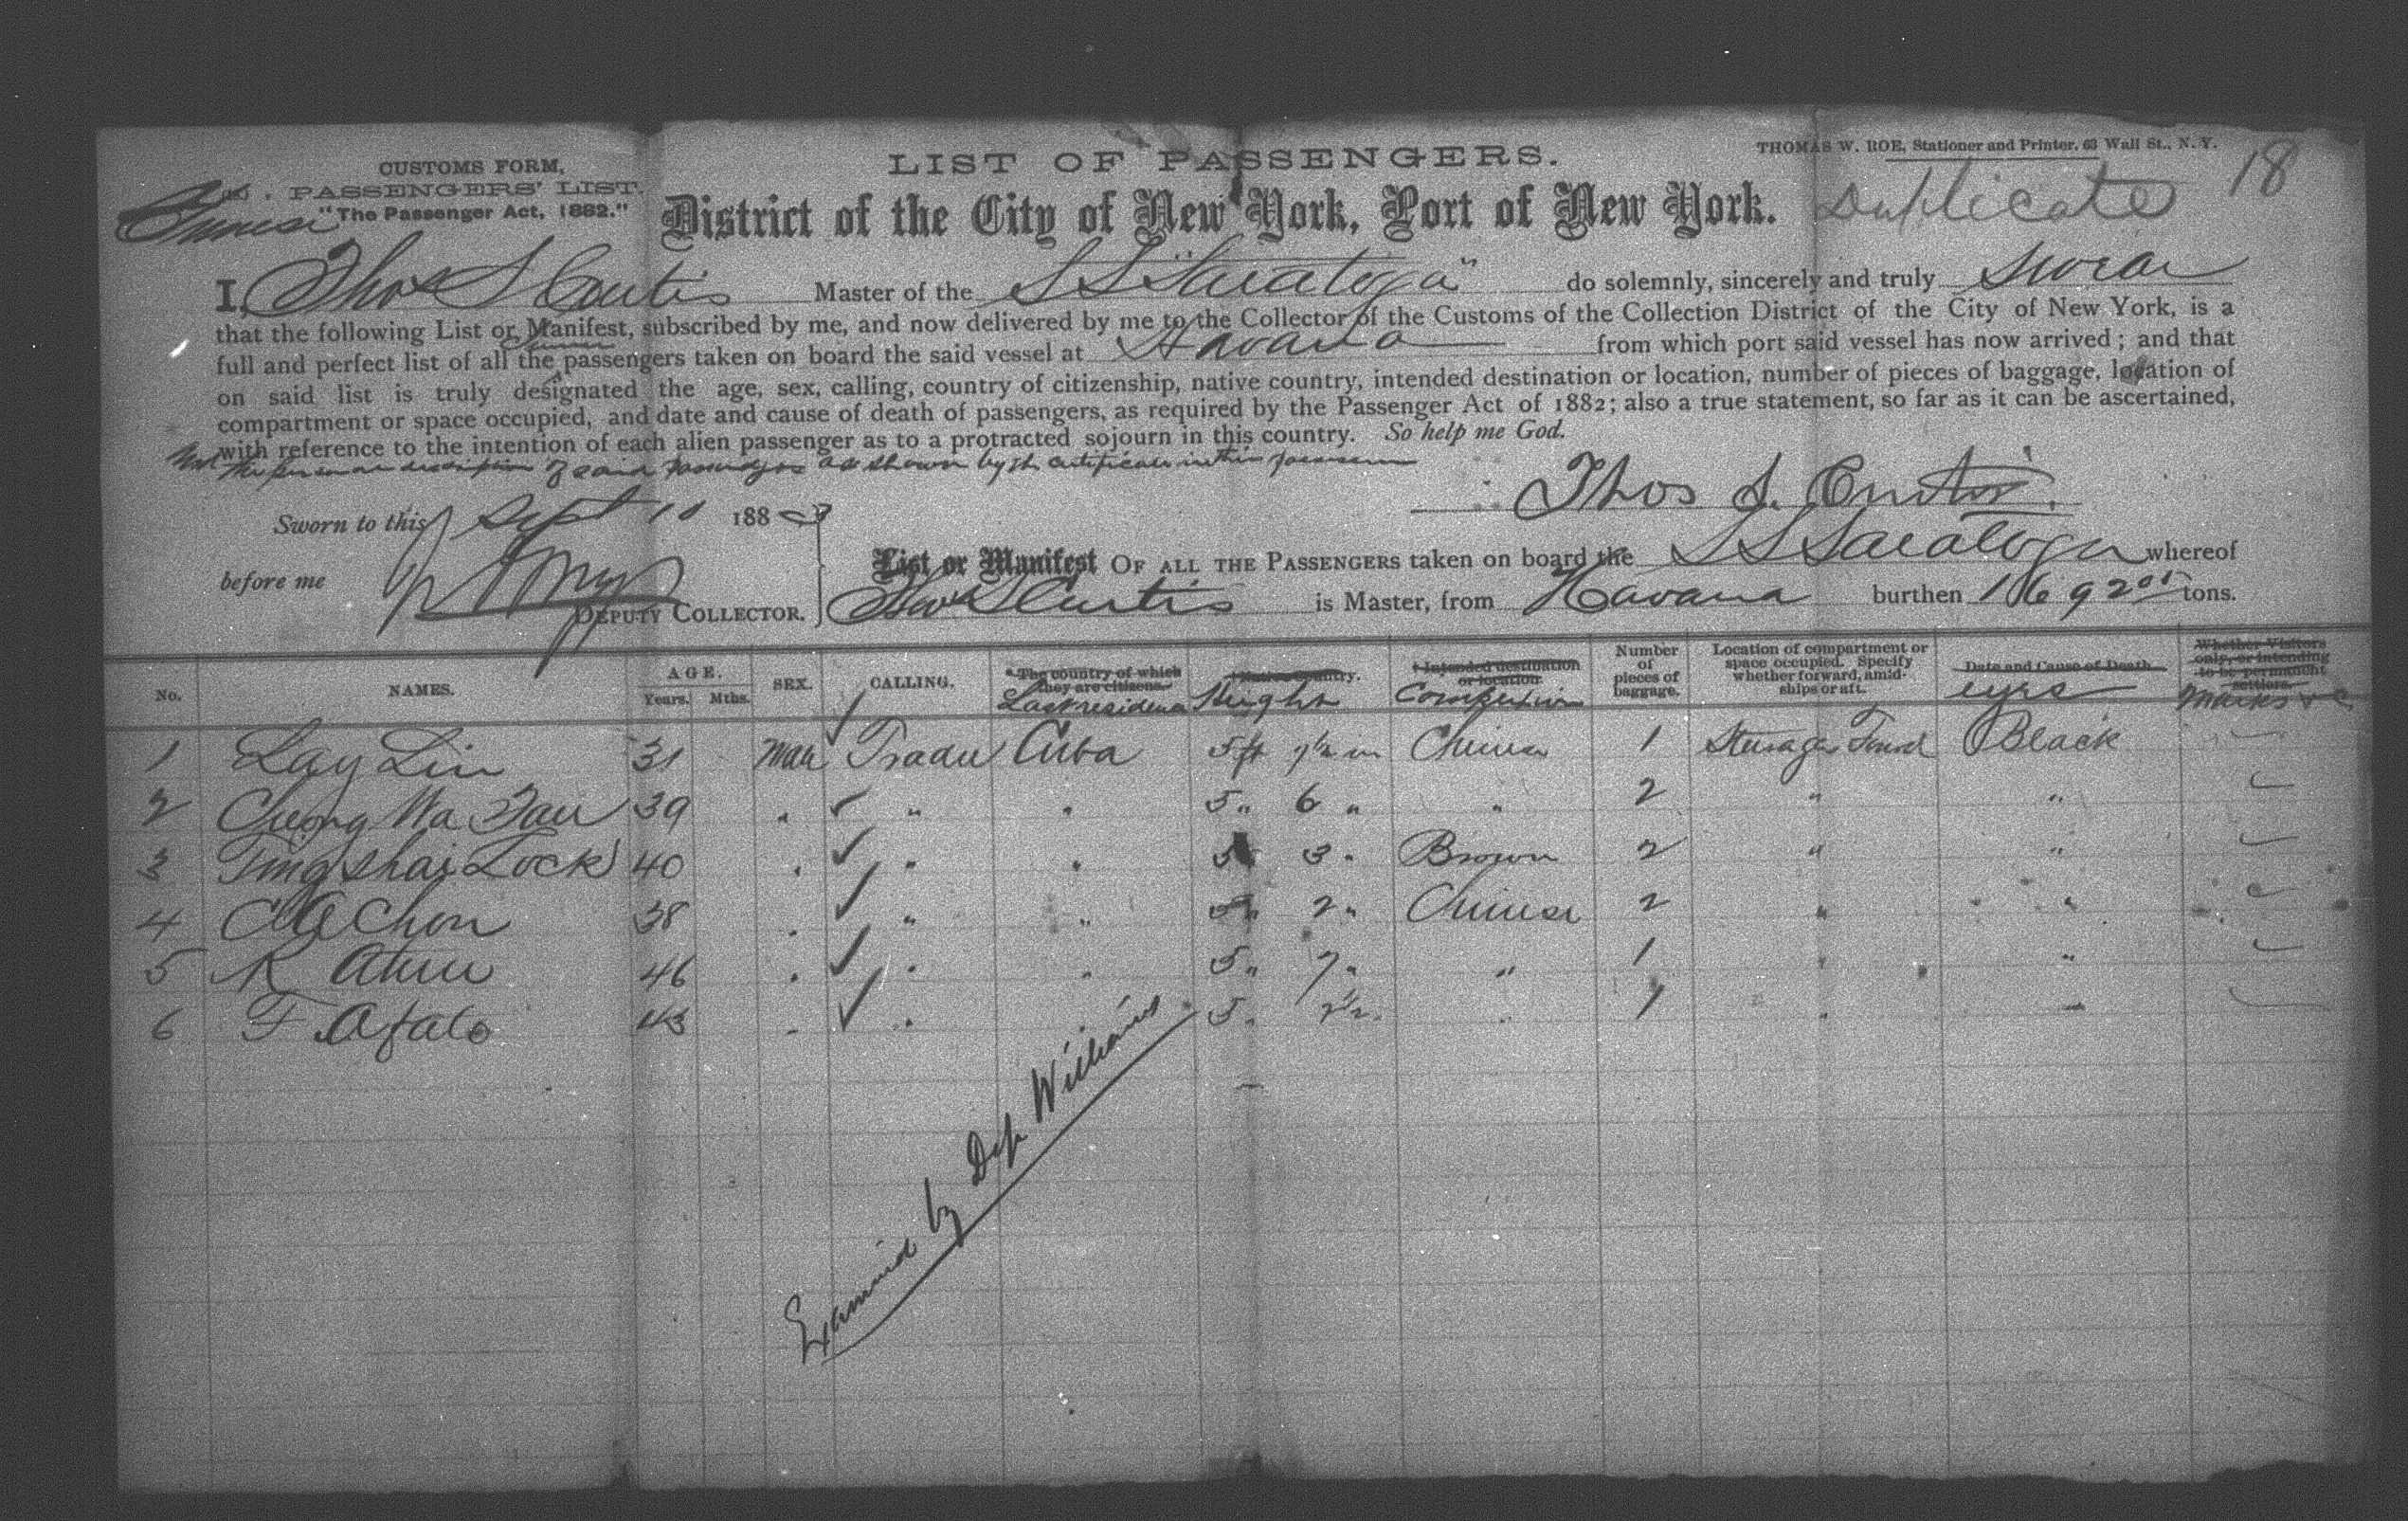 CUSTOMS FORM,
LIST OF PASSENGERS.
THOMAS W. ROE, Stationer and Printer, 63 Wall St., N. Y.
18
PASSENGERS' LIST.
Chinese "The Passenger Act, 1882."
District of the City of New York, Port of New York.
Duplicate
I, Thos S Curtis Master of the SS "Saratoga" do solemnly, sincerely and truly swear
that the following List or Manifest, subscribed by me, and now delivered by me to the Collector of the Customs of the Collection District of the City of New York, is a
Chinese
full and perfect list of all the passengers taken on board the said vessel at Havana from which port said vessel has now arrived; and that
on said list is truly designated the age, sex, calling, country of citizenship, native country, intended destination or location, number of pieces of baggage, location of
compartment or space occupied, and date and cause of death of passengers, as required by the Passenger Act of 1882; also a true statement, so far as it can be ascertained,
with reference to the intention of each alien passenger as to a protracted sojourn in this country. So help me God.
the personal description of said passengers as shown by the certificates in their possession
Thos S. Curtis.
Sworn to this Sept 10 188
before me
DEPUTY COLLECTOR.
List or Manifest OF ALL THE PASSENGERS taken on board the SS Saratoga whereof
Thos S Curtis is Master, from Havana burthen 1692 tons.
No. NAMES. AGE. Years. Mths. SEX. CALLING. * The country of which they are citizens. Last residence † Native Country. Height ‡ Intended destination or location. Complexion Number of pieces of baggage. Location of compartment or space occupied. Specify whether forward, amidships or aft. Date and Cause of Death. eyes Whether Visitors only, or intending to be permanent settlers. Marks &c
1 Lay Lin 31 Male Trader Cuba 5 ft 7½ in Chinese 1 Steerage Forwd Black
2 Cheong Wa 39 " " " 5 " 6 " " 2 " "
3 Ting Shai Lock 40 " " " 5 3 " Brown 2 " "
4 Achon 38 " " " 5 " 2 " Chinese 2 " "
5 R 46 " " " 5 " 7 " " 1 " "
6 F. Afalo 43 " " 5 " 2½ " " 1 " "
Examined by Dep Williams